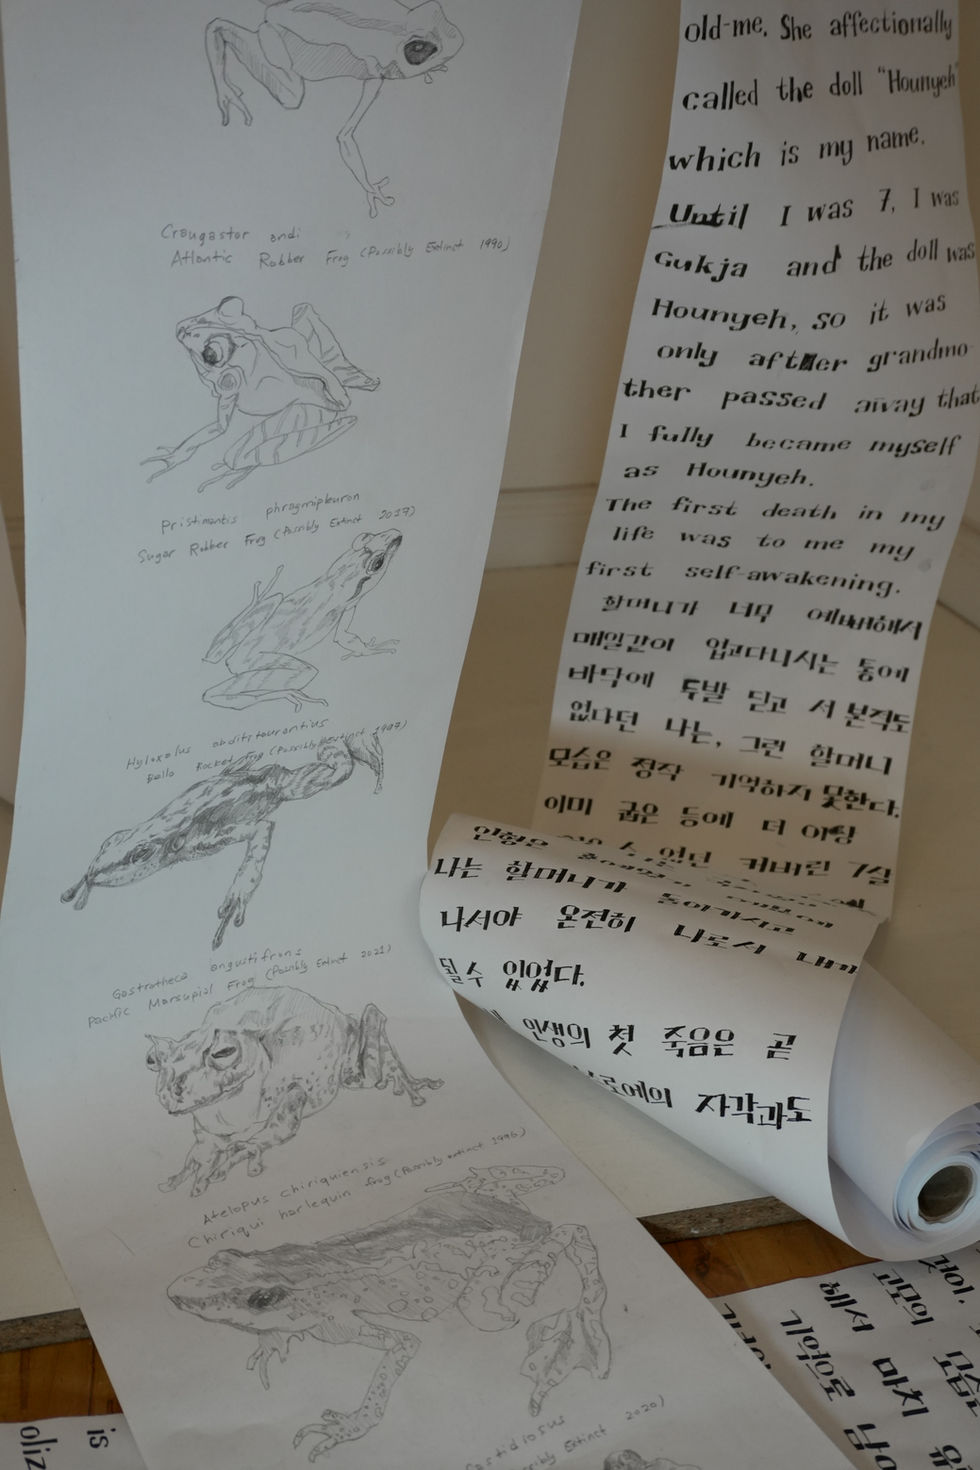 Craugastor andi
Atlantic Robber Frog (Possibly Extinct 1990)
Pristimantis phragmipleuron
Sugar Robber Frog (Possibly Extinct 2017)
Hyloxalus abditaurantius
Bello Rocket Frog (Possibly Extinct 1997)
Gastrotheca angustifrons
Pacific Marsupial Frog (Possibly Extinct 2021)
Atelopus chiriquiensis
Chiriqui harlequin frog (Possibly extinct 1996)
Extinct 2020)
old-me. She affectionally
called the doll "Hounyeh"
which is my name.
Until I was 7, I was
Gukja and the doll was
Hounyeh, so it was
only after grandmo-
ther passed away that
I fully became myself
as Hounyeh.
The first death in my
life was to me my
first self-awakening.
할머니가 너무 예뻐해서
매일같이 업고다니시는 통에
바닥에 두발 딛고 서 본적도
없다던 나는, 그런 할머니
모습은 정작 기억하지 못한다.
이미 굽은 등에 더 이상
수 없던 커버린 7살
인형은
나는 할머니가 돌아가시고
나서야 온전히 나로서
될수 있었다.
인생의 첫 죽음은 곧
자각과도
is
마치